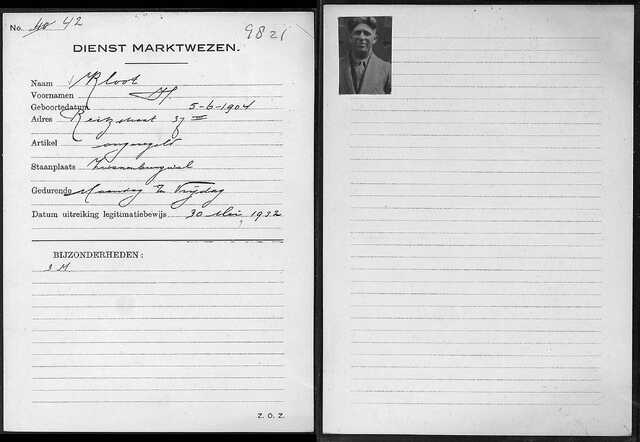 No. 42 9821
DIENST MARKTWEZEN.
Naam Kloot
Voornamen H.
Geboortedatum 5-6-1904
Adres 37 III
Artikel ongeregeld
Staanplaats Zwanenburgwal
Gedurende Maandag Vrijdag
Datum uitreiking legitimatiebewijs 30 Mei 1932
BIJZONDERHEDEN:
3 M.
Z. O. Z.